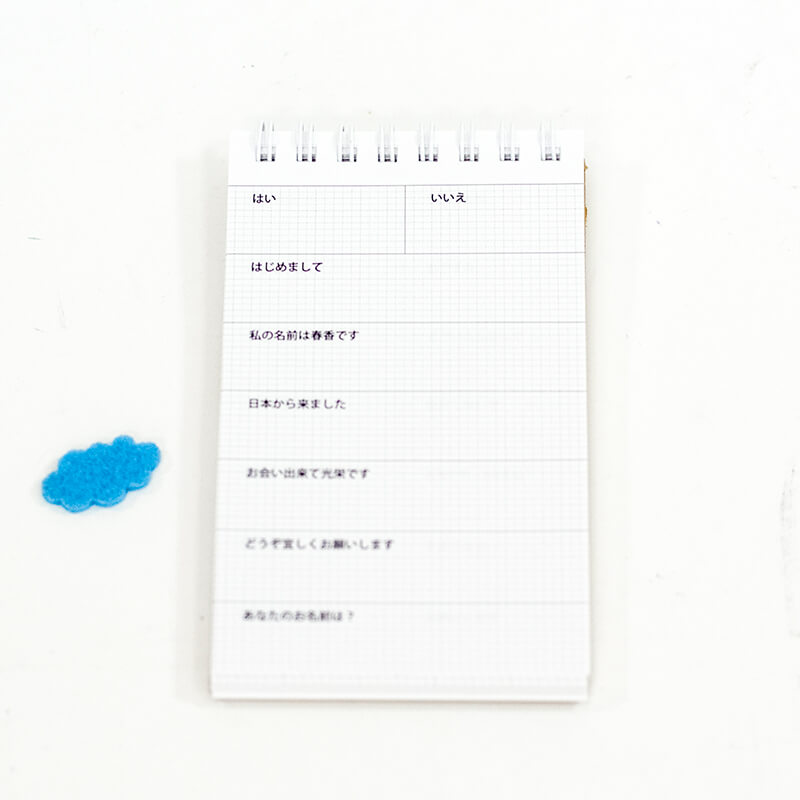 はい いいえ
はじめまして
私の名前は春香です
日本から来ました
お会い出来て光栄です
どうぞ宜しくお願いします
あなたのお名前は？